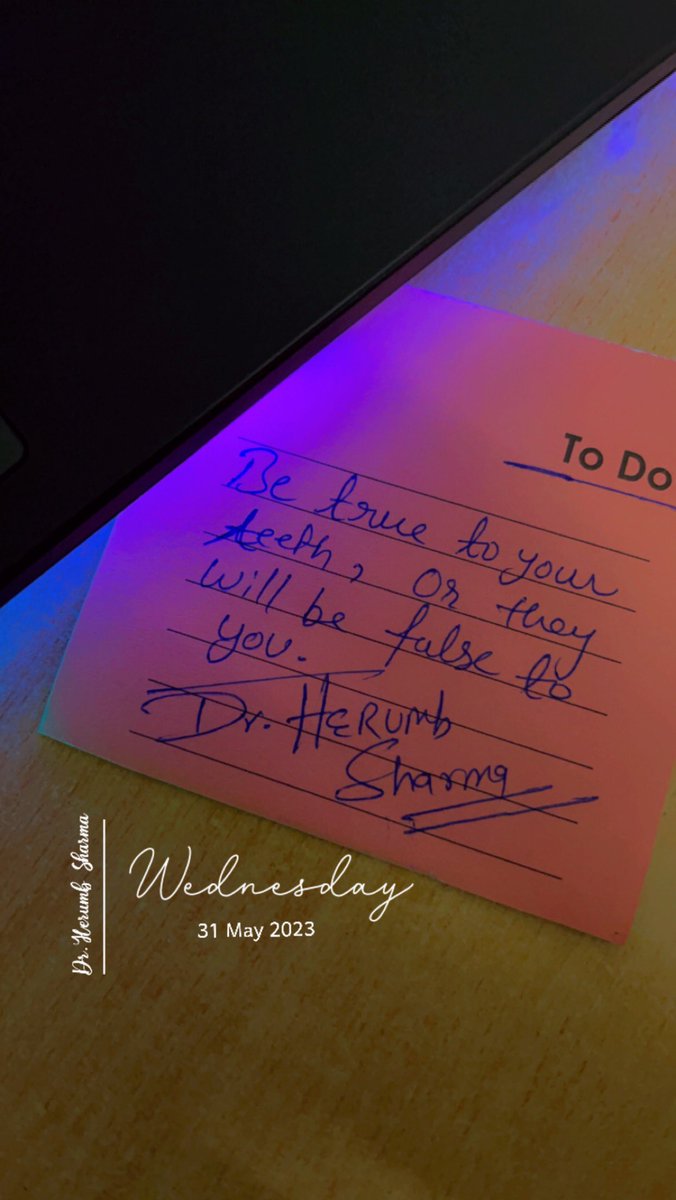 To Do
Be true to your
teeth, or they
will be false to
you.
Dr. HERUMB
Sharma
Dr. Herumb Sharma
Wednesday
31 May 2023